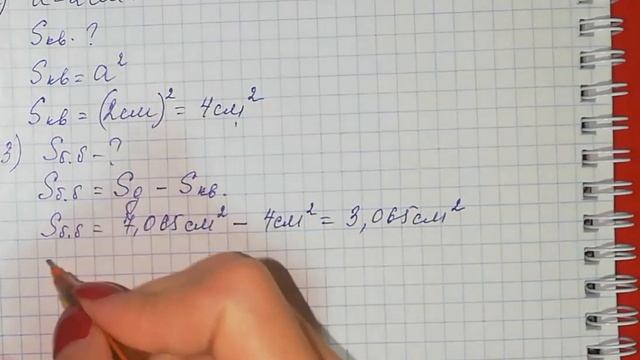 Sкв. ?
Sкв = a²
Sкв = (2см)² = 4см²
3) Sб.б - ?
Sб.б = Sд - Sкв.
Sб.б = 7,065см² - 4см² = 3,065см²